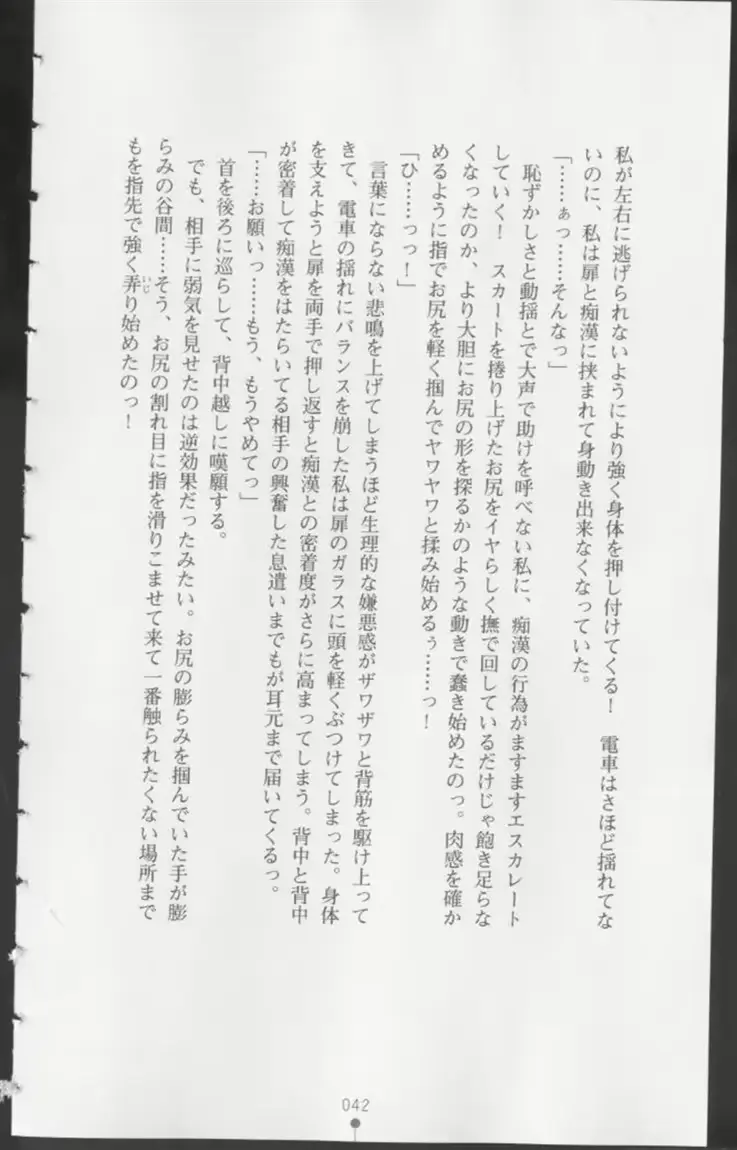 私が左右に逃げられないようにより強く身体を押し付けてくる！　電車はさほど揺れてな
いのに、私は扉と痴漢に挟まれて身動き出来なくなっていた。
「……ぁっ……そんなっ」
　恥ずかしさと動揺とで大声で助けを呼べない私に、痴漢の行為がますますエスカレート
していく！　スカートを捲り上げたお尻をイヤらしく撫で回しているだけじゃ飽き足らな
くなったのか、より大胆にお尻の形を探るかのような動きで蠢き始めたのっ。肉感を確か
めるように指でお尻を軽く掴んでヤワヤワと揉み始めるぅ……っ！
「ひ……っっ！」
　言葉にならない悲鳴を上げてしまうほど生理的な嫌悪感がザワザワと背筋を駆け上って
きて、電車の揺れにバランスを崩した私は扉のガラスに頭を軽くぶつけてしまった。身体
を支えようと扉を両手で押し返すと痴漢との密着度がさらに高まってしまう。背中と背中
が密着して痴漢をはたらいてる相手の興奮した息遣いまでもが耳元まで届いてくるっ。
「……お願いっ……もう、もうやめてっ」
　首を後ろに巡らして、背中越しに嘆願する。
　でも、相手に弱気を見せたのは逆効果だったみたい。お尻の膨らみを掴んでいた手が膨
らみの谷間……そう、お尻の割れ目に指を滑りこませて来て一番触られたくない場所まで
もを指先で強く弄り始めたのっ！
いじ
042